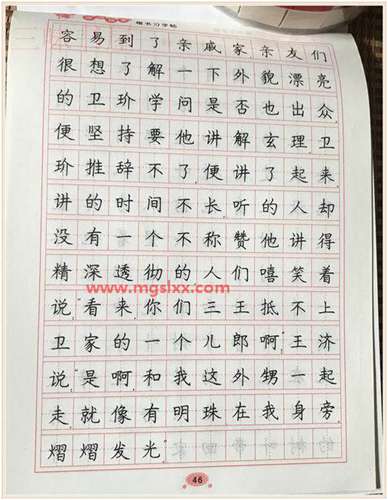 楷书习字帖
容易到了亲戚家亲友们
很想了解一下外貌漂亮
的卫玠学问是否也出众
便坚持要他讲解玄理卫
玠推辞不了便讲了起来
讲的时间不长听的人却
没有一个不称赞他讲得
精深透彻的人们嘻笑着
www.mgslxx.com
说“看来你们三王抵不上
卫家的一个儿郎啊”王济
说“是啊和我这外甥一起
走就像有明珠在我身旁
熠熠发光
46